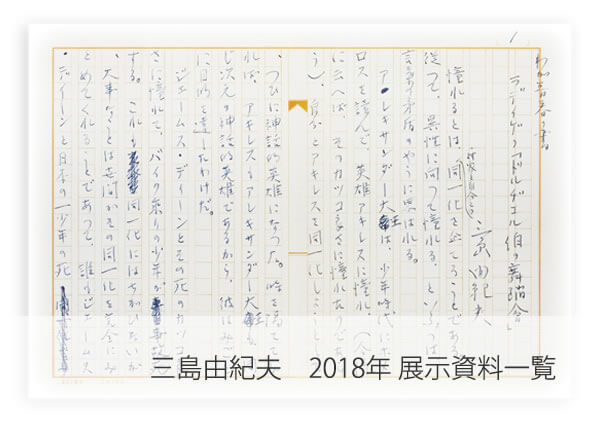 わが青春の書
ラディゲの「ドルヂェル伯の舞踏会」
三島由紀夫
憧れるとは、同一化を企てることである。
従つて、異性に向つて憧れる、といふのは
言葉の矛盾のやうに思はれる。
アレキサンダー大王は、少年時代にホ
ロスを読んで、英雄アキレスに憧れ、(今
に云へば、そのカッコよさに憧れたのであ
う)、自分とアキレスを同一化しようと
つひに神話的英雄になつた。時を隔てて
れば、アキレスもアレキサンダー大王も、
じ次元の神話的英雄であるから、彼はみ
に目的を達したわけだ。
ジェームス・ディーンとその死のカッコ
さに憧れて、バイク乗りの少年が事故死
する。これも同一化にはちがひないが
大事なことは世間がその同一化を完全にみ
とめてくれることであつて、誰がジェームス
・ディーンと日本の一少年の死
三島由紀夫　2018年 展示資料一覧